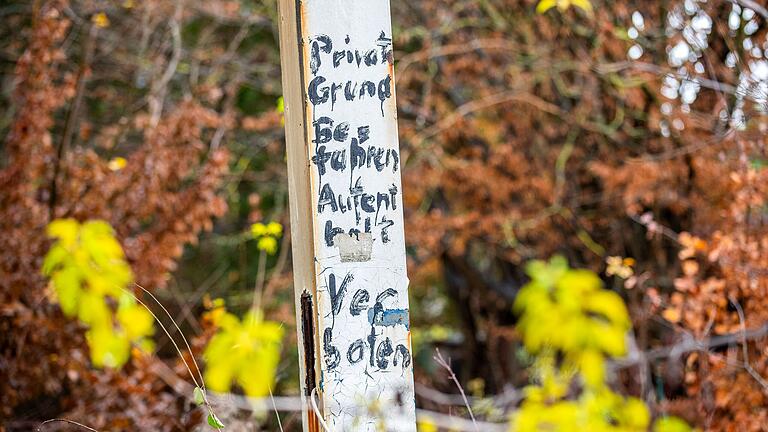 Privat
Grund
Be=
fahren
Aufent
halt
Ver
boten